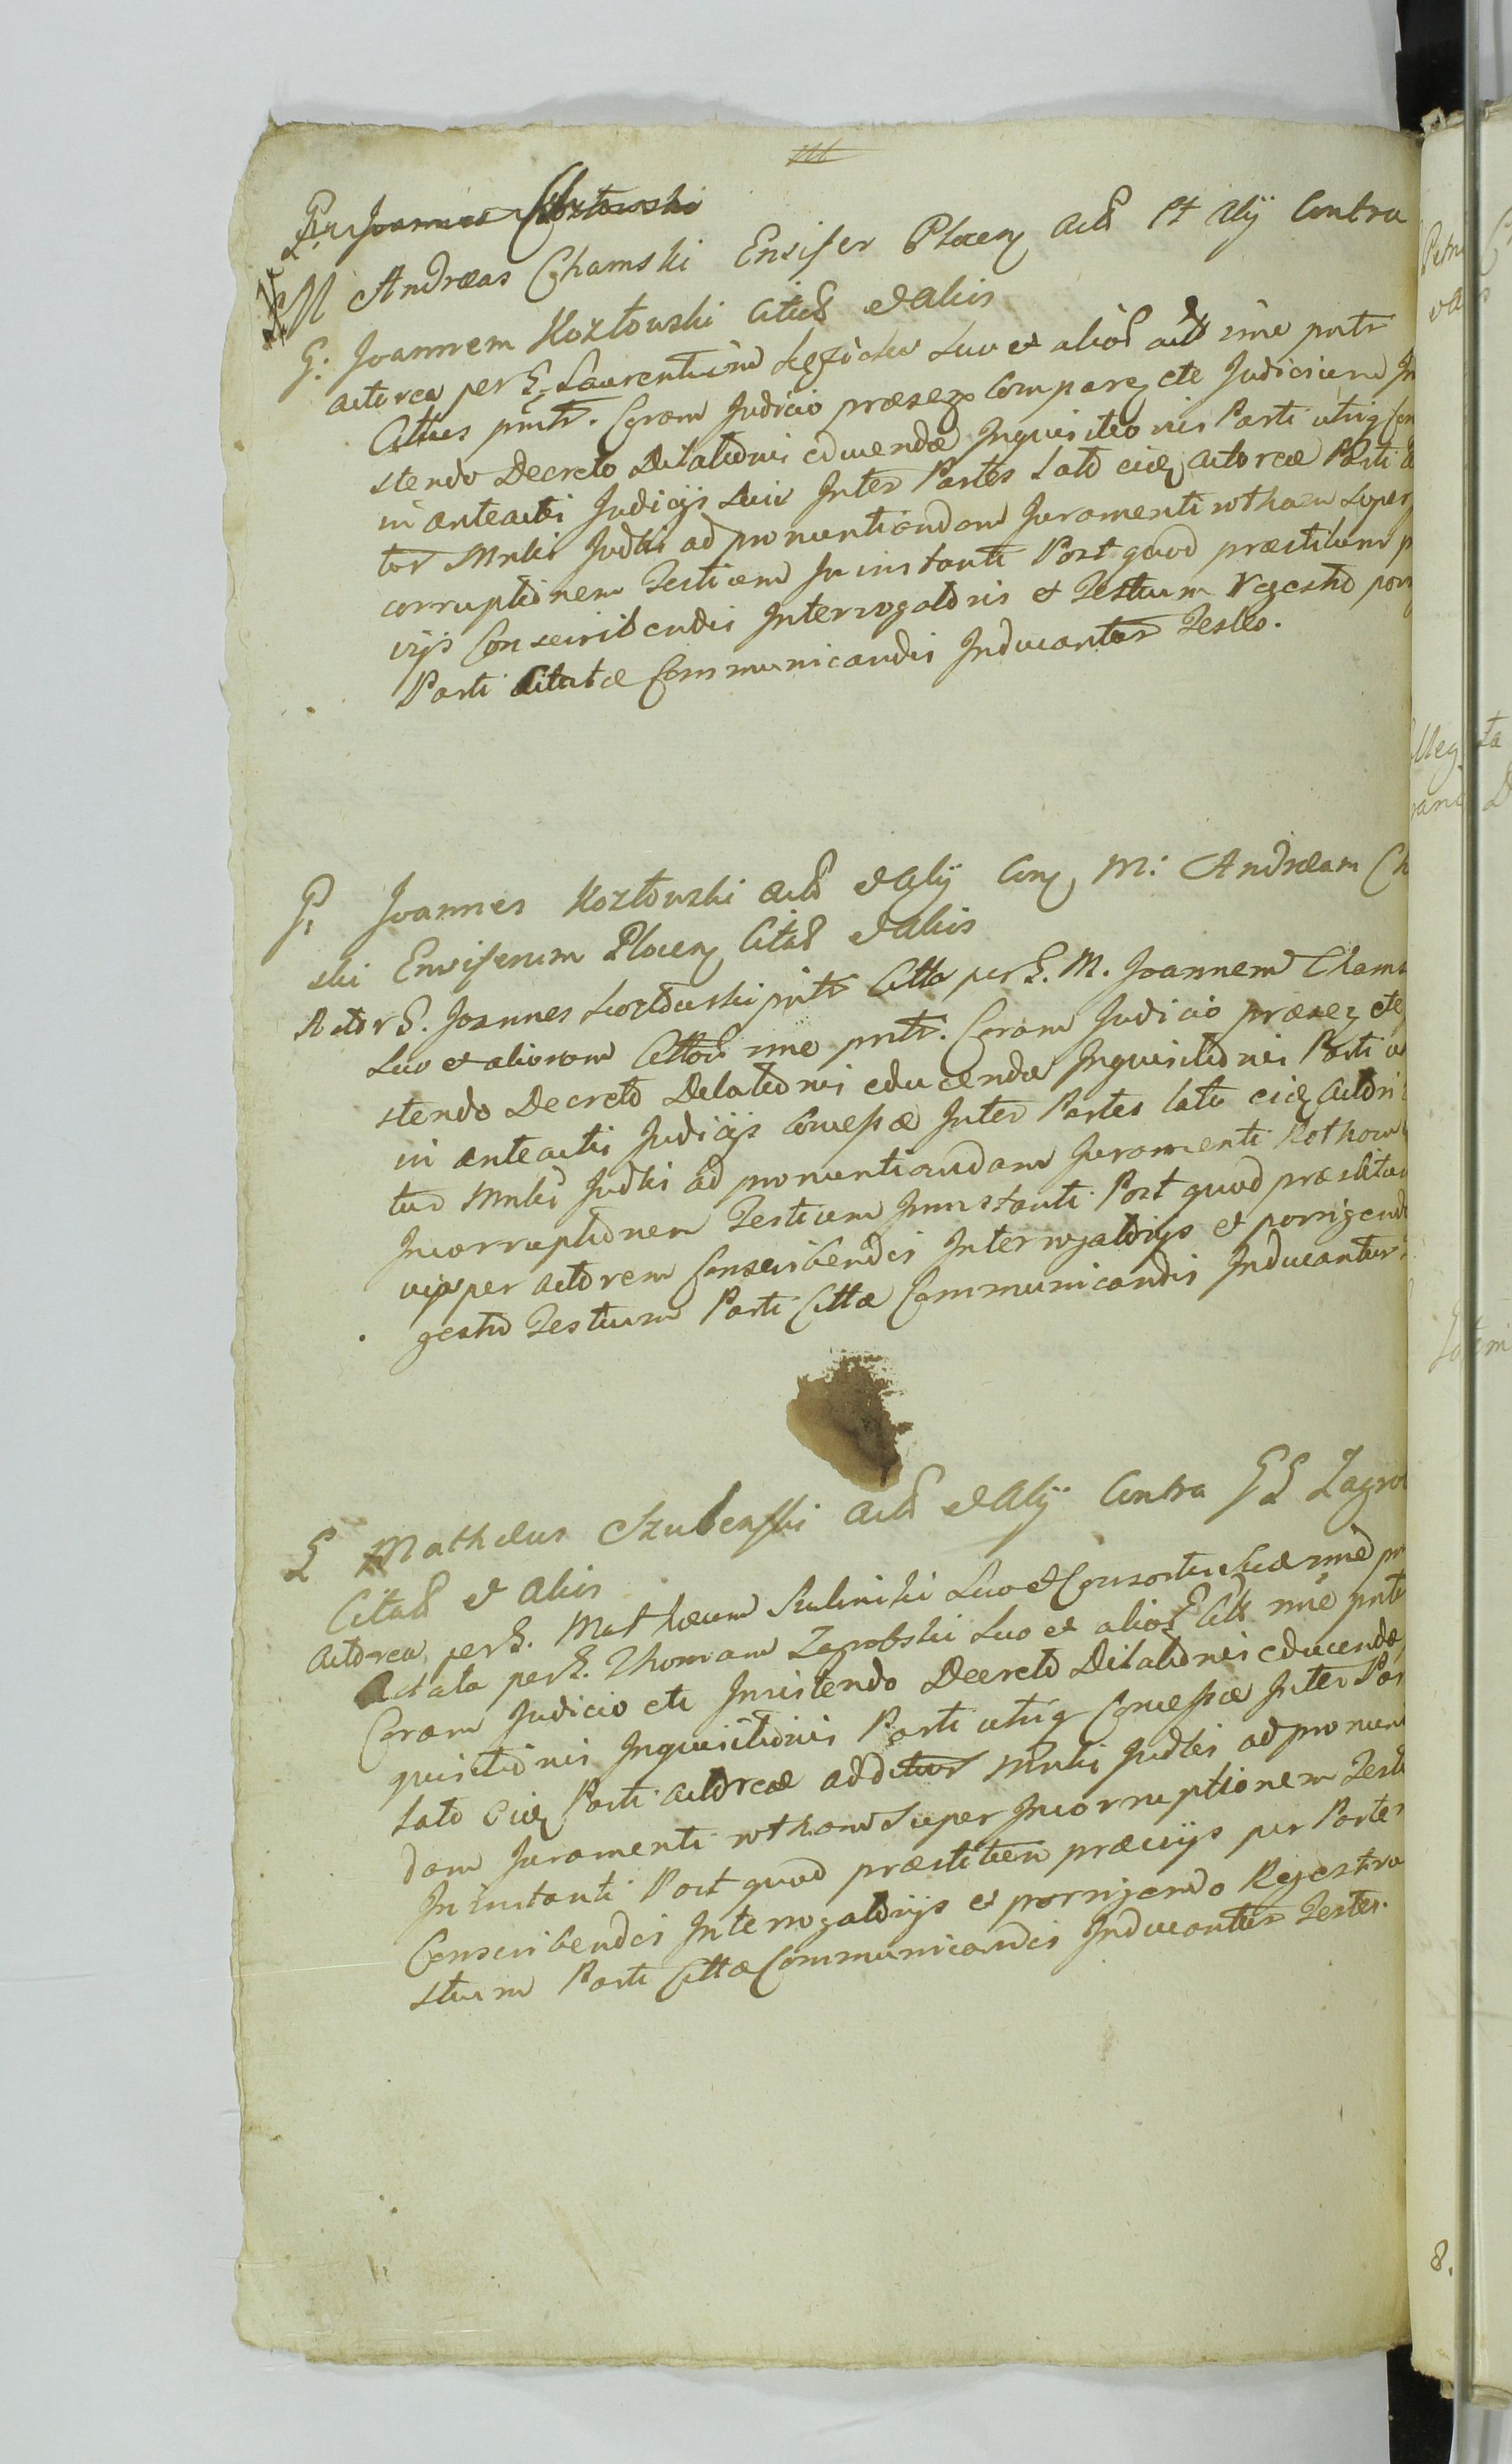 G. Joannes Kozłowski
M Andreas Chamski Ensifer Plocen Act Et Alij Contra
G. Joannem Kozłowski Citat et Alios
Actorea per G. Laurentium suo et alior act nne pntr
Cittus pntr. Coram Judicio præsez Comparez etc Judicium In
stendo Decreto Dilationis educendæ Inquisitionis Parti utriq Con
in anteactis Judicijs suis Inter Partes lato eidz Actoreæ Parti
tur Mnlis Judlis ad pronuntiandam Juramenti rotham super
corruptionem Testium In instanti Post quod præstitum
vijs Conscribendis Interrogatoris et Testium Regestro porr
Parti Citatæ Communicandis Inducantur Testes.
G. Joannes Kozłowski act et Alij Con M: Andream Ch
ski Ensiferum Plocen Citat et Alios
Actor G. Joannes Kozłowski pntr Citta per G. M. Joannem Chams
suo et aliorum Cittor nne pntr. Coram Judicio præsez etc
stendo Decreto Dilationis educendæ Inquisitionis Parti ut
in anteactis Judicijs Concessæ Inter Partes lato eidz Actori
tur Mnlis Judlis ad pronuntiandam Juramenti Rotham
Incorruptionem Testium Ininstanti Post quod præstitum
vijs per actorem Conscribendis Interrogatorijs et porrigend
gestro Testium Parti Cittæ Communicandis Inducantur
G Mathæus Szulenski Act et Alij Contra GG Zagrob
Citat et Alios
Actorea per G. Mathæum Sulinski suo et Consortis suæ nne pn
Citata per G. Thomam Zagrobski suo et alior Citt nne pntr
Coram Judicio etc Insistendo Decreto Dilationis educendæ
quisitionis Inquisitionis Parti utriq Concessæ Inter Par
lato Eidz Parti Actoreæ additur Mnlis Judlis ad pronun
dam Juramenti rotham Super Incorruptionem Testi
In instanti Post quod præstitum præcijs per Partem
Conscribendis Interrogatorijs et porrigendo Regestro
stium Parti Cittæ Communicandis Inducantur Testes.
8.